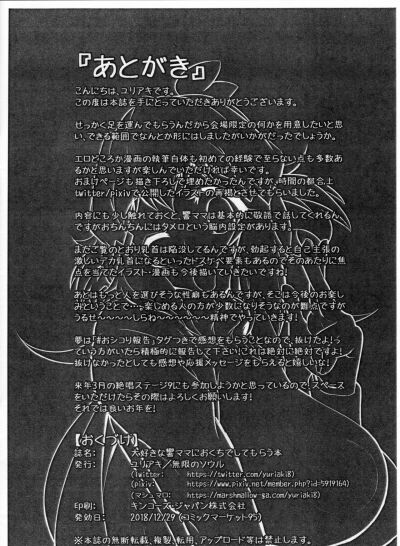 『あとがき』
こんにちは、ユリアキです。
この度は本誌を手にとっていただきありがとうございます。
せっかく足を運んでもらうんだから会場限定の何かを用意したいと思
い、できる範囲でなんとか形にはしましたがいかがだったでしょうか。
エロどころか漫画の執筆自体も初めての経験で至らない点も多数あ
るかと思いますが楽しんでいただければ幸いです。
おまけページも描き下ろしで埋めたかったんですが、時間の都合上
twitter/pixivで公開したイラストの再掲とさせてもらいました。
内容にも少し触れておくと、響ママは基本的に敬語で話してくれるん
ですがおちんちんにはタメ口という脳内設定があります。
またご覧のとおり乳首は陥没してるんですが、勃起すると自己主張の
激しいデカ乳首になるといったドスケベ要素もあるのでそのあたりに焦
点を当てたイラスト・漫画も今後描いていきたいですね!
あとはもっと人を選びそうな性癖もあるんですが、そこは今後のお楽し
みということで…っ楽しめる人の方が少数になりそうなのが難点ですが
うるせ〜〜〜〜しらね〜〜〜〜〜〜精神でやっていきます!
夢は「#おシコり報告」タグつきで感想をもらうことなので、抜けたよ!っ
ていう方がいたら積極的に報告して下さい!これは絶対に絶対ですよ!
抜けなかったとしても感想や応援メッセージをもらえると嬉しいな!
来年3月の絶唱ステージ9にも参加しようかと思っているので、スペース
をいただけたらその際はよろしくお願いします!
それでは良いお年を!
【おくづけ】
誌名: 大好きな響ママにおくちでしてもらう本
発行: ユリアキ/無限のソウル
(Twitter: https://twitter.com/yuriaki8)
(pixiv: https://www.pixiv.net/member.php?id=5919164)
(マシュマロ: https://marshmallow-qa.com/yuriaki8)
印刷: キンコーズ・ジャパン株式会社
発効日: 2018/12/29 (コミックマーケット95)
※本誌の無断転載、複製、転用、アップロード等は禁止します。